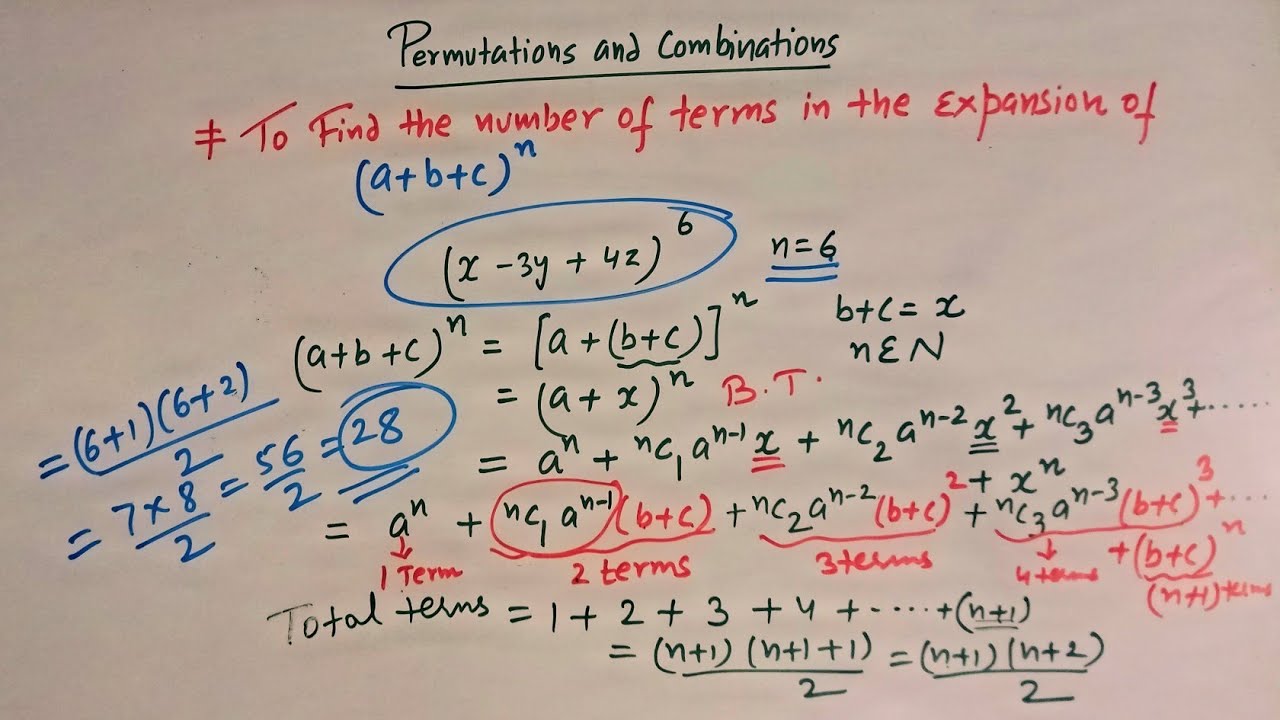 Permutations and Combinations
≠ To Find the number of terms in the expansion of
(a+b+c)^n
(x -3y + 4z)^6 n=6
b+c = x
(a+b+c)^n = [a+(b+c)]^n n∈N
= (a+x)^n B.T.
= a^n + nC1 a^(n-1) x + nC2 a^(n-2) x^2 + nC3 a^(n-3) x^3 + ......
+ x^n
= a^n + nC1 a^(n-1) (b+c) + nC2 a^(n-2) (b+c)^2 + nC3 a^(n-3) (b+c)^3 + ....
+ (b+c)^n
1 Term 2 terms 3 terms 4 terms (n+1) terms
Total terms = 1 + 2 + 3 + 4 + ..... + (n+1)
= (n+1)(n+1+1)/2 = (n+1)(n+2)/2
= (6+1)(6+2)/2
= 7×8/2 = 56/2 = 28